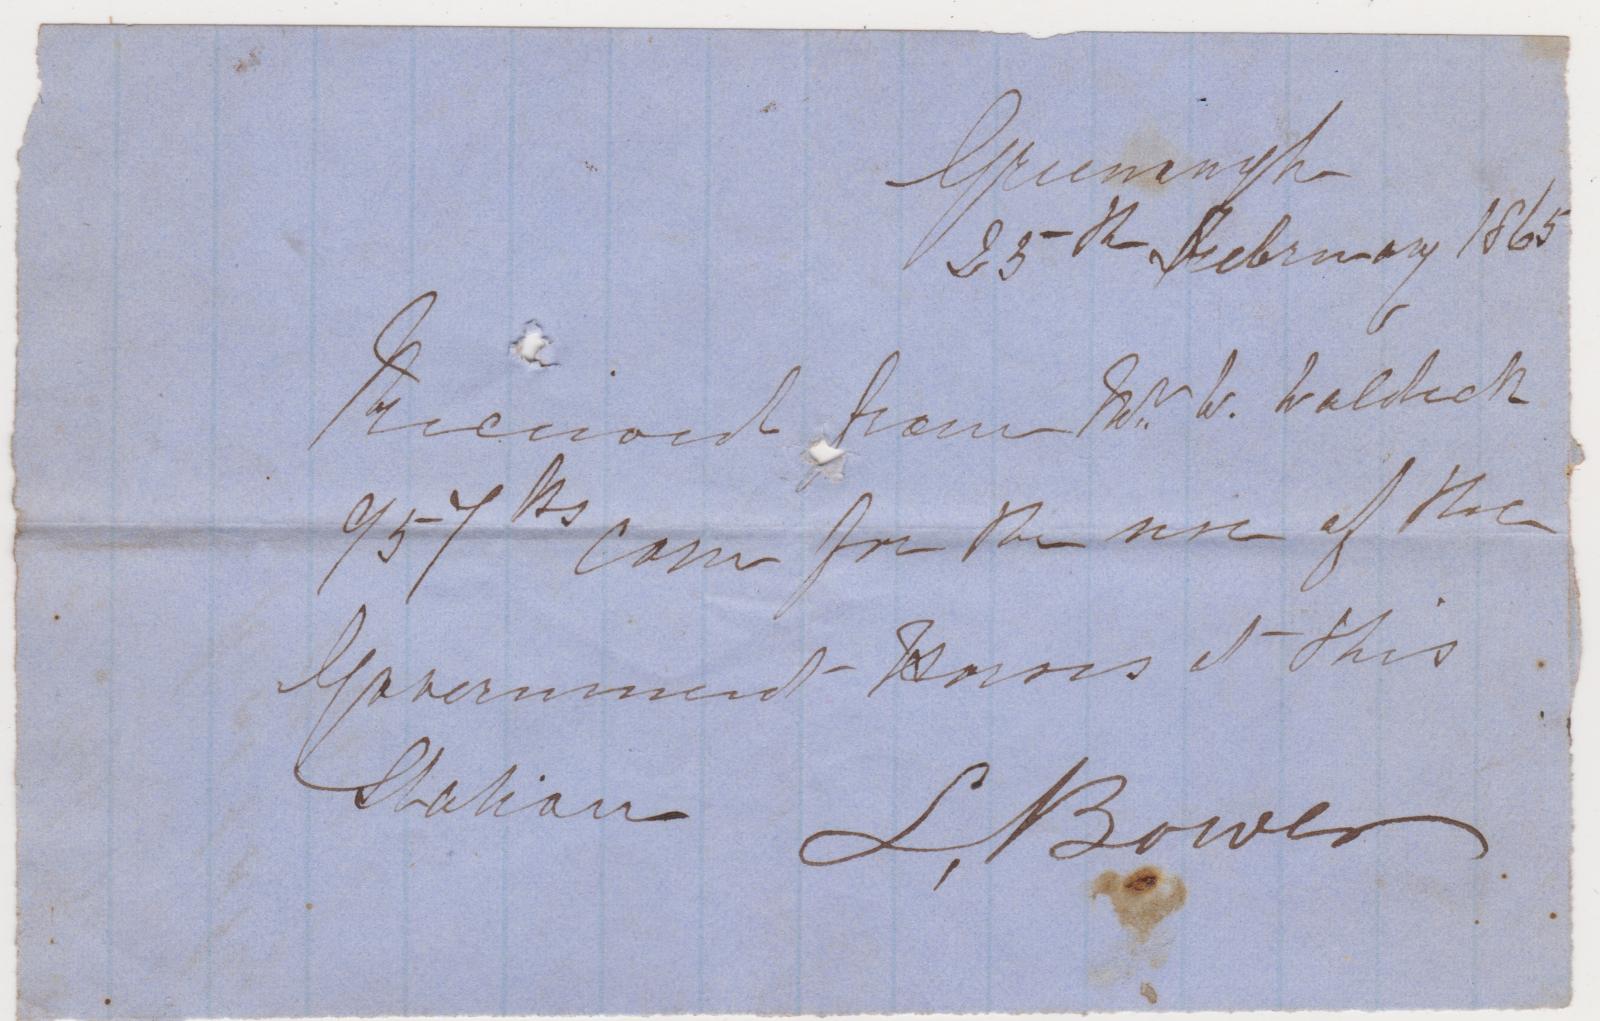 Greenough
25th February 1865
Received from Mr. W. Waldeck
957 lbs corn for the use of the
Government Horses at this
Station
L, Bower